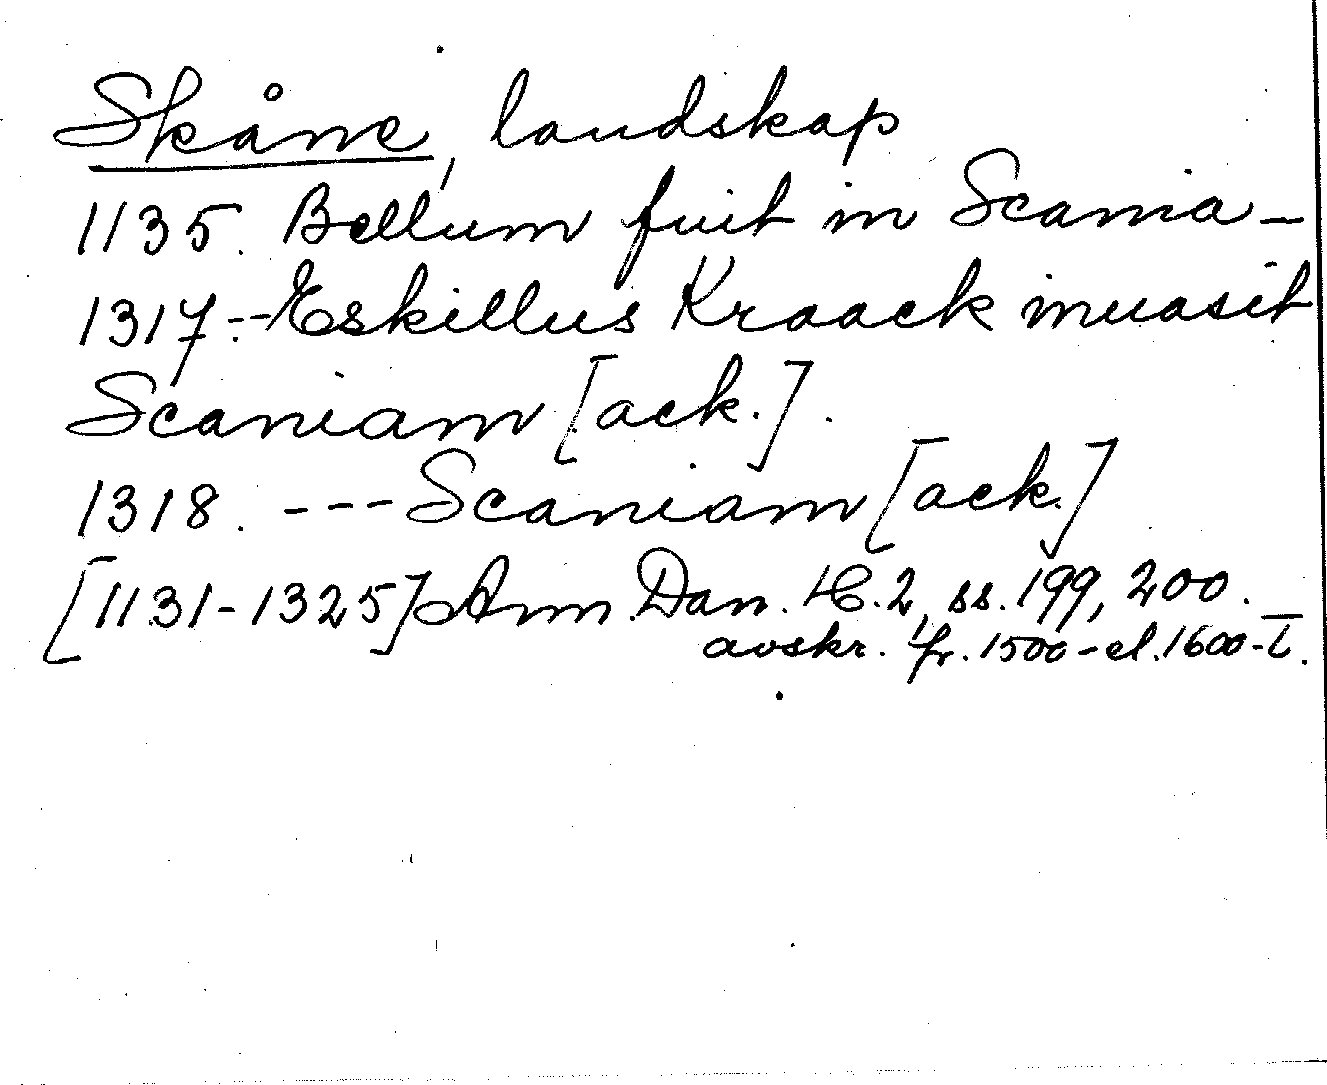 Skåne, landskap
1135. Bellum fuit in Scania -
1317.-- Eskillus Kraack inuasit
Scaniam [ack.].
1318. --- Scaniam [ack.]
[1131-1325] Ann. Dan. H.2, ss. 199, 200.
avskr. fr. 1500- el. 1600-t.